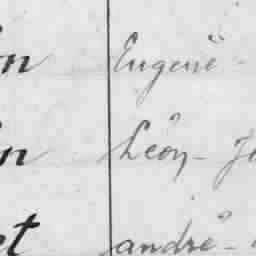 on Eugène -
on Léon - J
et andré -